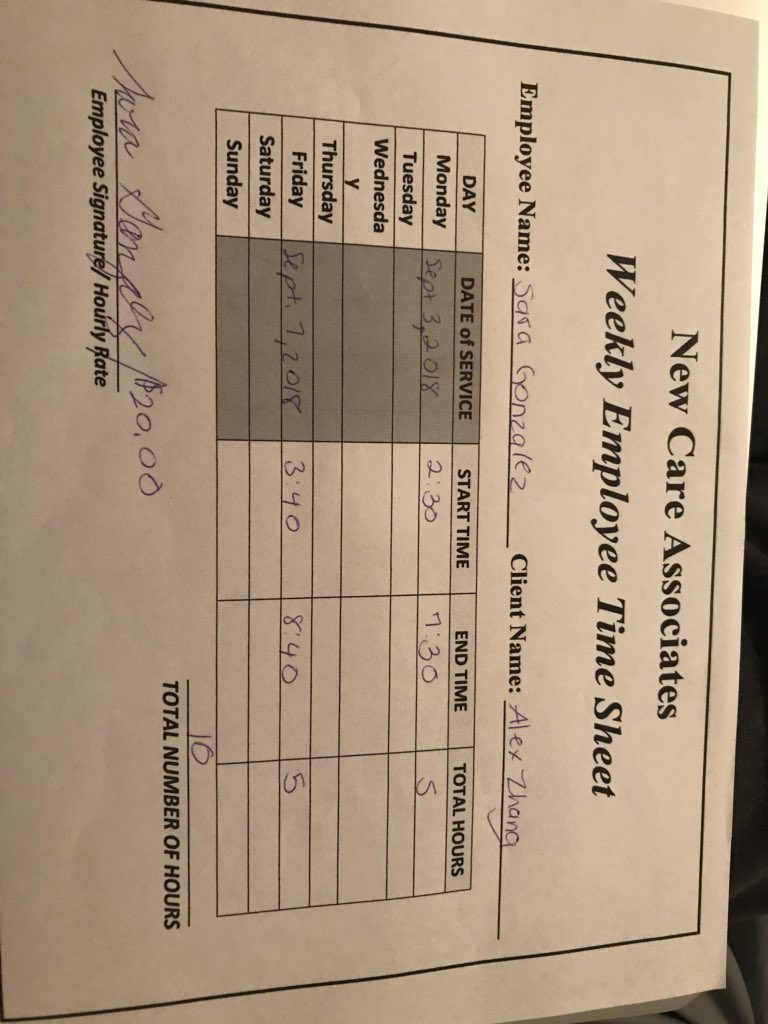 New Care Associates
Weekly Employee Time Sheet
Employee Name: Sara Gonzalez Client Name: Alex Zhang
DAY DATE of SERVICE START TIME END TIME TOTAL HOURS
Monday Sept 3, 2018 2:30 7:30 5
Tuesday
Wednesda
y
Thursday
Friday Sept. 7, 2018 3:40 8:40 5
Saturday
Sunday
10
TOTAL NUMBER OF HOURS
Sara Gonzalez / $20.00
Employee Signature/ Hourly Rate